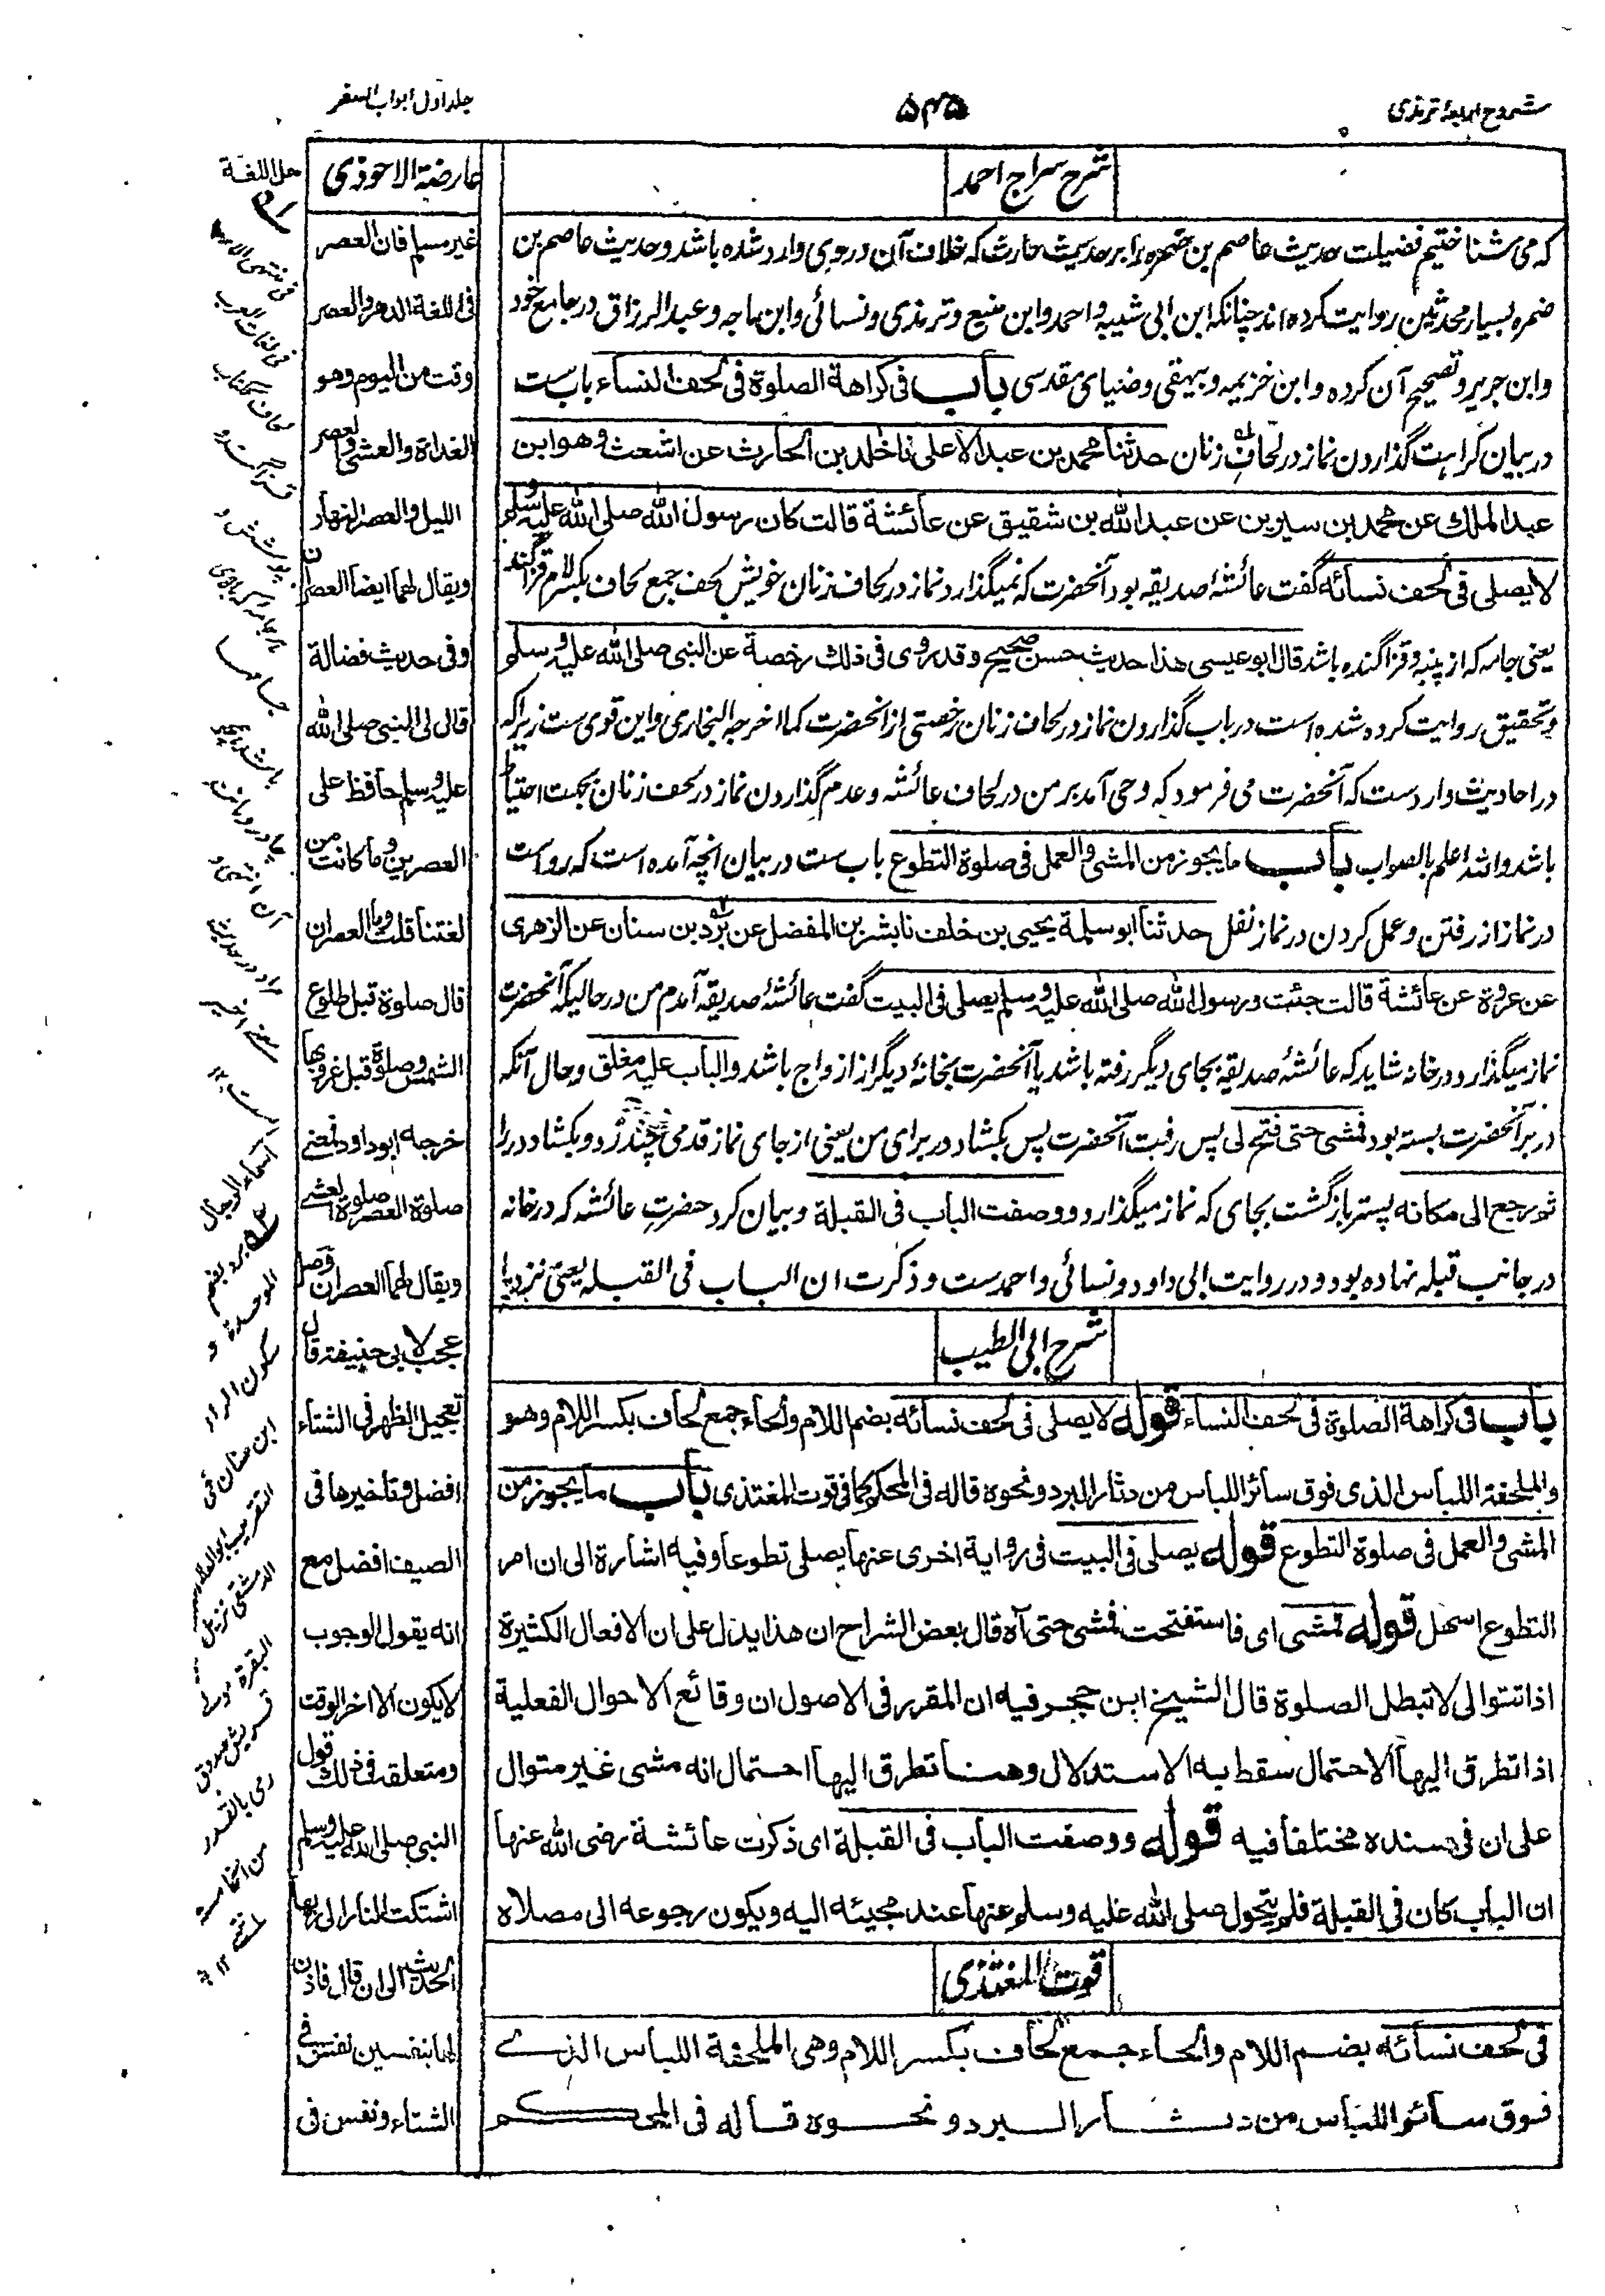 شروح اربعۀ ترمذی
۵۴۵
جلد اول ابواب السفر
شرح سراج احمد
که می شناختیم فضیلت حدیث عاصم بن ضمره را بر حدیث حارث که خلاف آن در وی وارد شده باشد وحدیث عاصم بن
ضمره بسیار محدثین روایت کرده اند چنانکه ابن ابی شیبه واحمد وابن منیع وترمذی ونسائی وابن ماجه وعبد الرزاق در جامع خود
وابن جریر وتصحیح آن کرده وابن خزیمه وبیهقی وضیای مقدسی باب فی کراهة الصلوة فی لحف النساء باب ست
در بیان کراهت گذاردن نماز در لحاف زنان حدثنا محمد بن عبد الاعلی نا خالد بن الحارث عن اشعث وهو ابن
عبد الملك عن محمد بن سیرین عن عبد الله بن شقیق عن عائشة قالت کان رسول الله صلی الله علیه وسلم
لا یصلی فی لحف نسائه گفت عائشۀ صدیقه بود آنحضرت که نمیگذارد نماز در لحاف زنان خویش لحف جمع لحاف بکسر لام قزاگند
یعنی جامه که از پنبه وقزاگنده باشد قال ابو عیسی هذا حدیث حسن صحیح وقد روی فی ذلك رخصة عن النبی صلی الله علیه وسلم
وتحقیق روایت کرده شده است در باب گذاردن نماز در لحاف زنان رخصتی از انحضرت کما اخرجه البخاری واین قوی ست زیراکه
در احادیث وارد ست که آنحضرت می فرمود که وحی آمد بر من در لحاف عائشه وعدم گذاردن نماز در لحف زنان بجهت احتیاط
باشد والله اعلم بالصواب باب ما یجوز من المشی والعمل فی صلوة التطوع باب ست در بیان آنچه آمده است که رواست
در نماز از رفتن وعمل کردن در نماز نفل حدثنا ابو سلمة یحیی بن خلف نا بشر بن المفضل عن برد بن سنان عن الزهری
عن عروة عن عائشة قالت جئت ورسول الله صلی الله علیه وسلم یصلی فی البیت گفت عائشۀ صدیقه آمدم من در حالیکه آنحضرت
نماز میگذارد در خانه شاید که عائشۀ صدیقه بجای دیگر رفته باشد یا آنحضرت بخانۀ دیگر از ازواج باشد والباب علیه مغلق وحال آنکه
در بر آنحضرت بسته بود فمشی حتی فتح لی پس رفت آنحضرت پس بکشاد در برای من یعنی از جای نماز قدمی چند زد وبکشاد در را
ثم رجع الی مکانه پستر بازگشت بجای که نماز میگذارد ووصفت الباب فی القبلة وبیان کرد حضرت عائشه که در خانه
در جانب قبله نهاده بود ودر روایت ابی داود ونسائی واحمد ست وذکرت ان الباب فی القبلة یعنی نزدیا
شرح ابی الطیب
باب فی کراهة الصلوة فی لحف النساء قوله لا یصلی فی لحف نسائه بضم اللام والحاء جمع لحاف بکسر اللام وهو
والملحفة اللباس الذی فوق سائر اللباس من دثار البرد ونحوه قاله فی المحکم کما فی قوت المغتذی باب ما یجوز من
المشی والعمل فی صلوة التطوع قوله یصلی فی البیت فی روایة اخری عنها یصلی تطوعا وفیه اشارة الی ان امر
التطوع اسهل قوله فمشی ای فاستفتحت فمشی حتی آه قال بعض الشراح ان هذا یدل علی ان الافعال الکثیرة
اذا تتوالی لا تبطل الصلوة قال الشیخ ابن حجر فیه ان المقرر فی الاصول ان وقائع الاحوال الفعلیة
اذا تطرق الیها الاحتمال سقط به الاستدلال وهنا تطرق الیها احتمال انه مشی غیر متوال
علی ان فی سنده مختلفا فیه قوله ووصفت الباب فی القبلة ای ذکرت عائشة رضی الله عنها
ان الباب کان فی القبلة فلم یتحول صلی الله علیه وسلم عنها عند مجیئه الیه ویکون رجوعه الی مصلاه
قوت المغتذی
فی لحف نسائه بضم اللام والحاء جمع لحاف بکسر اللام وهی الملحفة اللباس الذی
فوق سائر اللباس من دثار البرد ونحوه قاله فی المحکم
عارضة الاحوذی
غیر مسلم فان العصر
فی اللغة الدهر والعصر
وقت من الیوم وهو
الغداة والعشی والعصر
اللیل والعصر النهار
ویقال لهما ایضا العصران
وفی حدیث فضالة
قال لی النبی صلی الله
علیه وسلم حافظ علی
العصرین وما کانت من
لغتنا قلت وما العصران
قال صلوة قبل طلوع
الشمس وصلوة قبل غروبها
خرجه ابو داود یعنی
صلوة العصر وصلوة العشی
ویقال لهما العصران وصل
عجب لابی حنیفة قال
تعجیل الظهر فی الشتاء
افضل وتاخیرها فی
الصیف افضل مع
انه یقول الوجوب
لا یکون الا اخر الوقت
ومتعلقه فی ذلك قول
النبی صلی الله علیه وسلم
اشتکت النار الی ربها
الحدیث الی ان قال فاذن
لها بنفسین نفس فی
الشتاء ونفس فی
حل اللغة
فی منتهی الارب
فی لغات العرب
لحاف ککتاب
پوشش و
باشد
آن انتهی و
اسماء الرجال
برد بضم
الموحدة و
سکون الراء
ابن سنان فی
التقریب ابو العلاء
الدمشقی نزیل
البصرة مولی
قریش صدوق
رمی بالقدر
من الخامسة